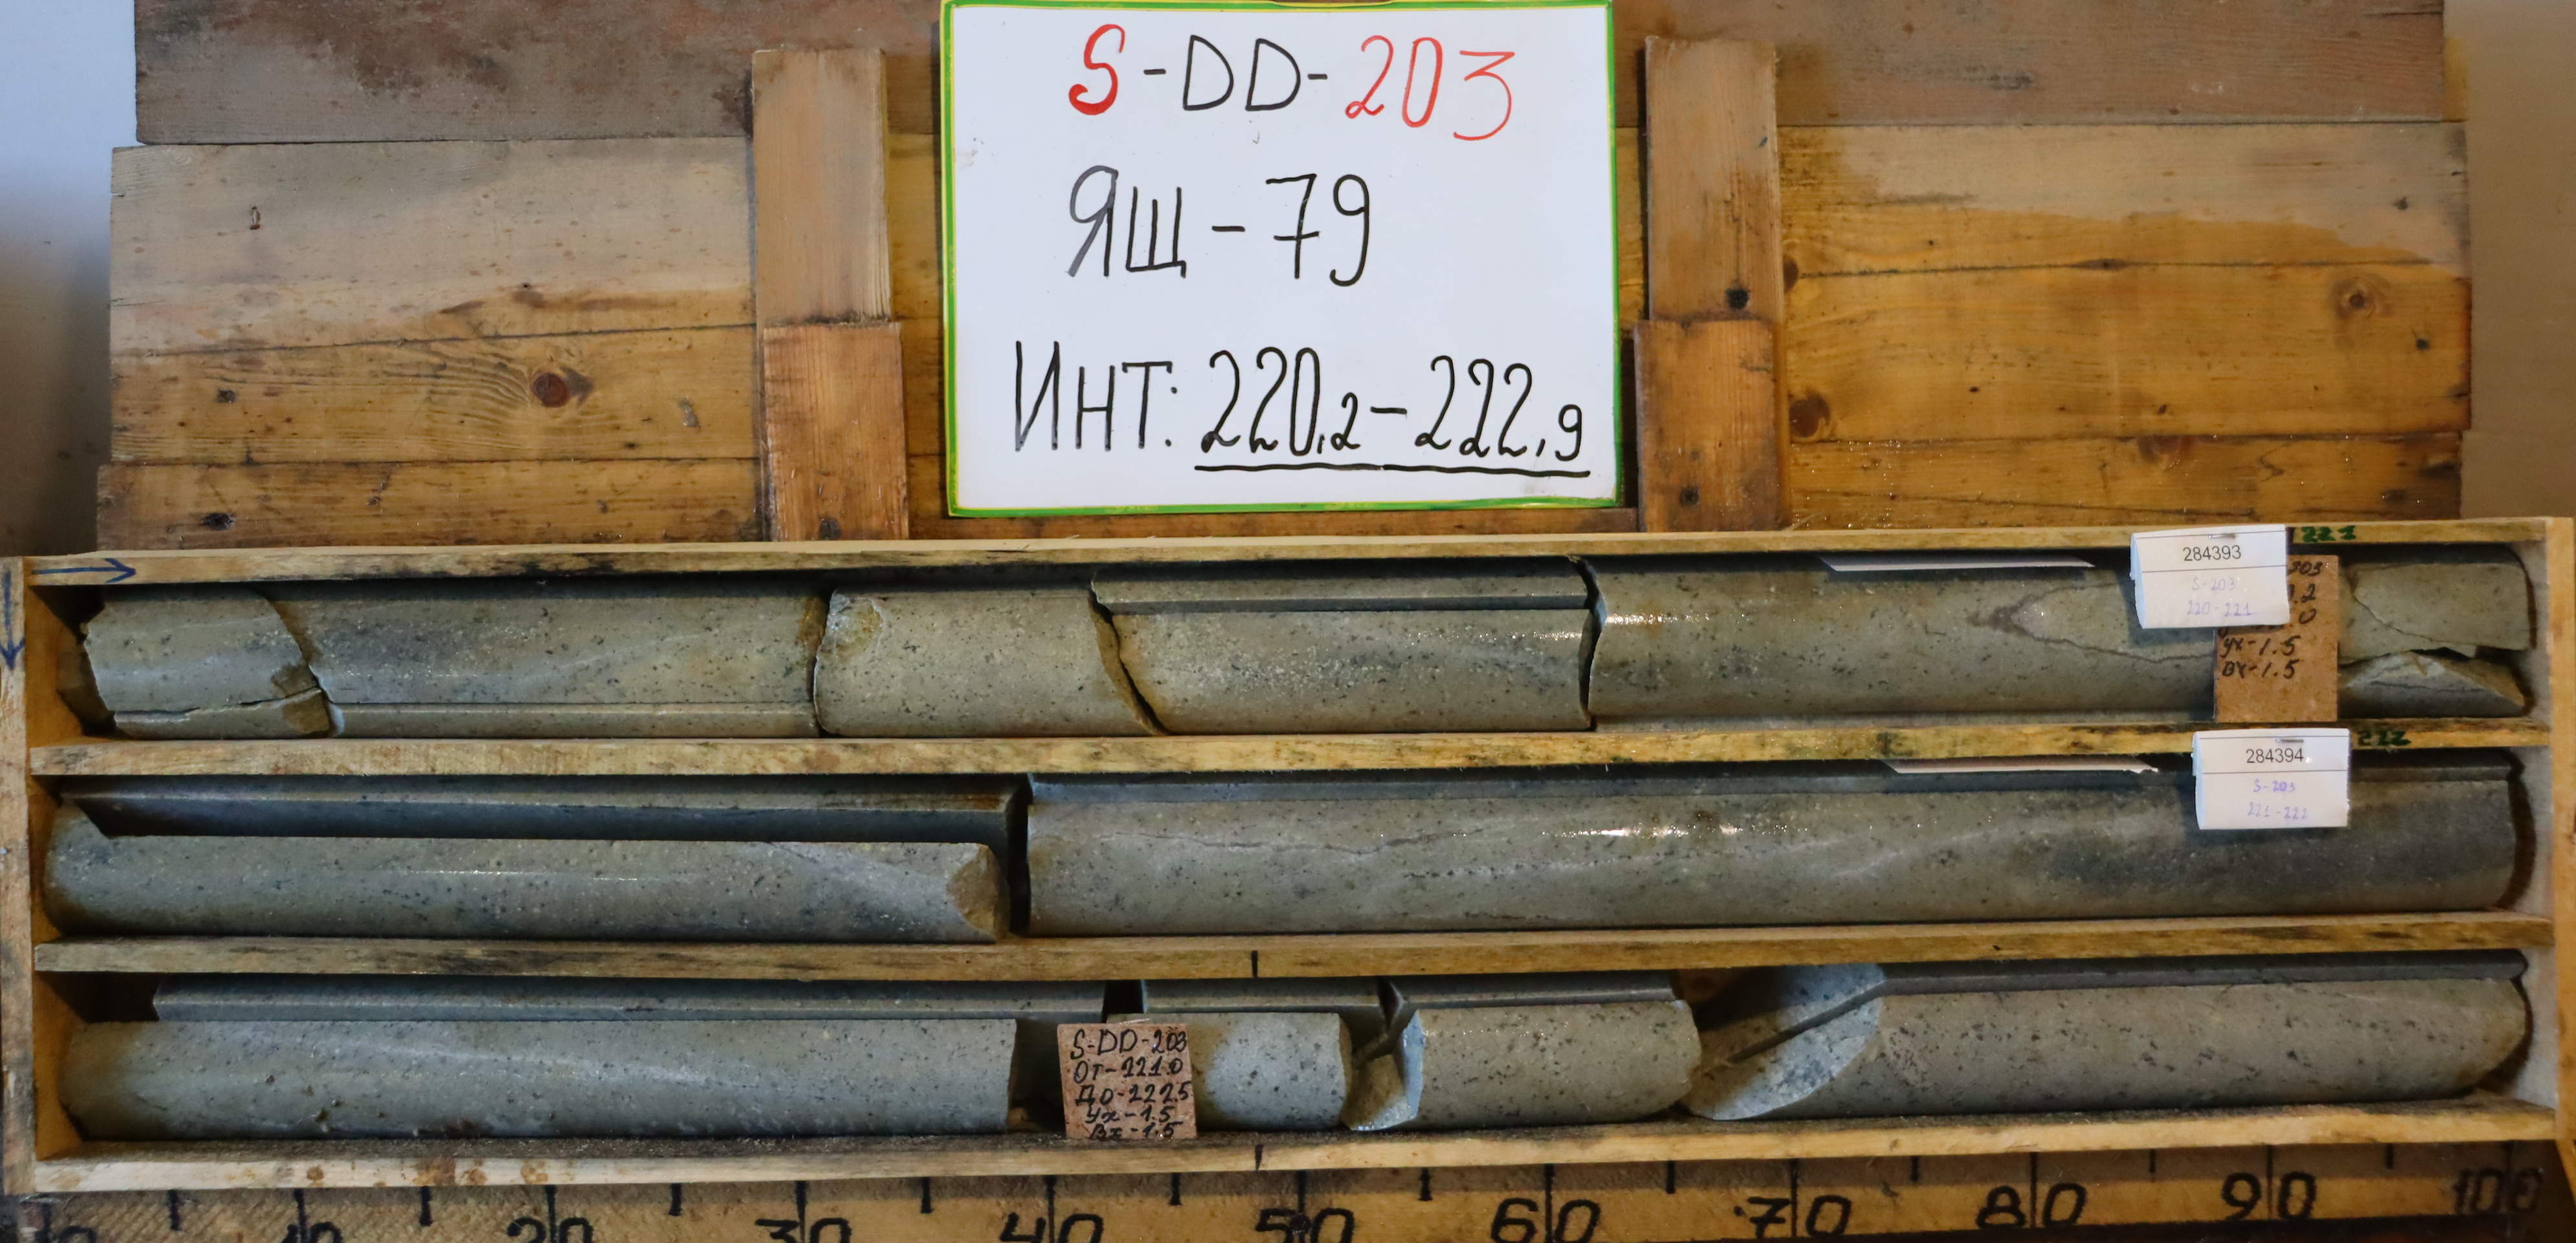 S-DD-203
ЯЩ-79
ИНТ: 220,2-222,9
221
284393
S-203
220-221
203
.2
.0
Ух-1.5
Вх-1.5
222
284394
S-203
221-222
S-DD-203
От-221.0
До-222.5
Ух-1.5
Вх-1.5
0 10 20 30 40 50 60 70 80 90 100